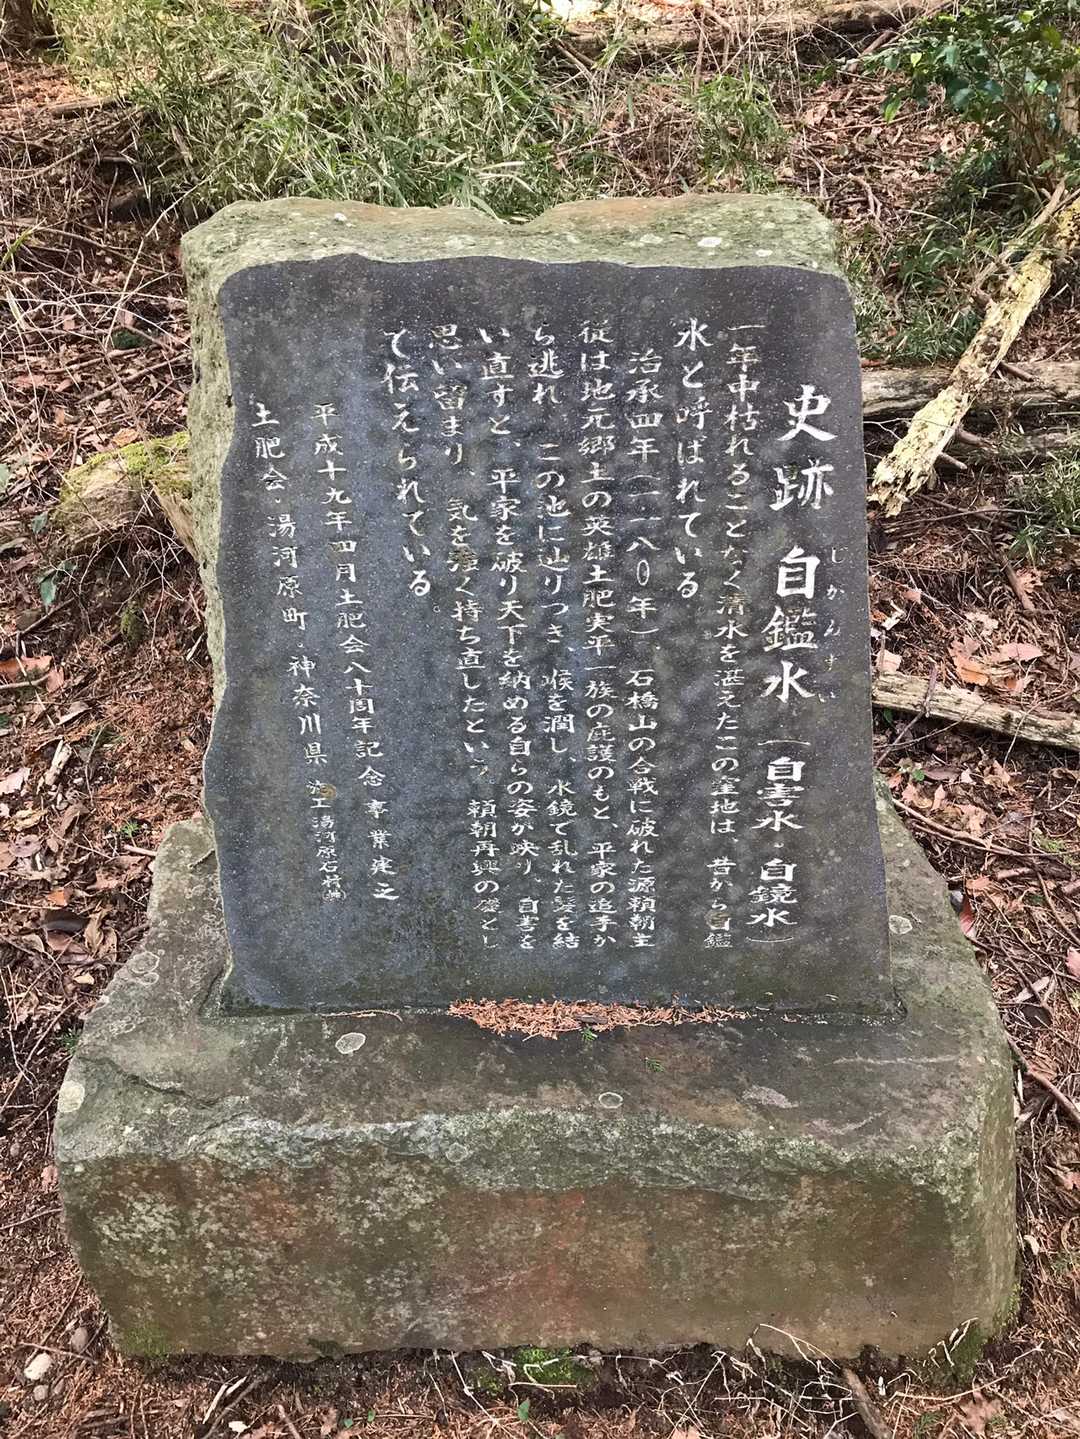 史跡 自鑑水(自害水・自鏡水)
じかんすい
一年中枯れることなく清水を湛えたこの窪地は、昔から自鑑
水と呼ばれている
治承四年(一一八〇年)、石橋山の合戦に破れた源頼朝主
従は地元郷土の英雄土肥実平一族の庇護のもと、平家の追手か
ら逃れ、この池に辿りつき、喉を潤し、水鏡で乱れた髪を結
い直すと、平家を破り天下を納める自らの姿が映り、自害を
思い留まり、気を強く持ち直したという。頼朝再興の礎とし
て伝えられている。
平成十九年四月土肥会八十周年記念事業建之
土肥会・湯河原町・神奈川県 施工湯河原石材㈱